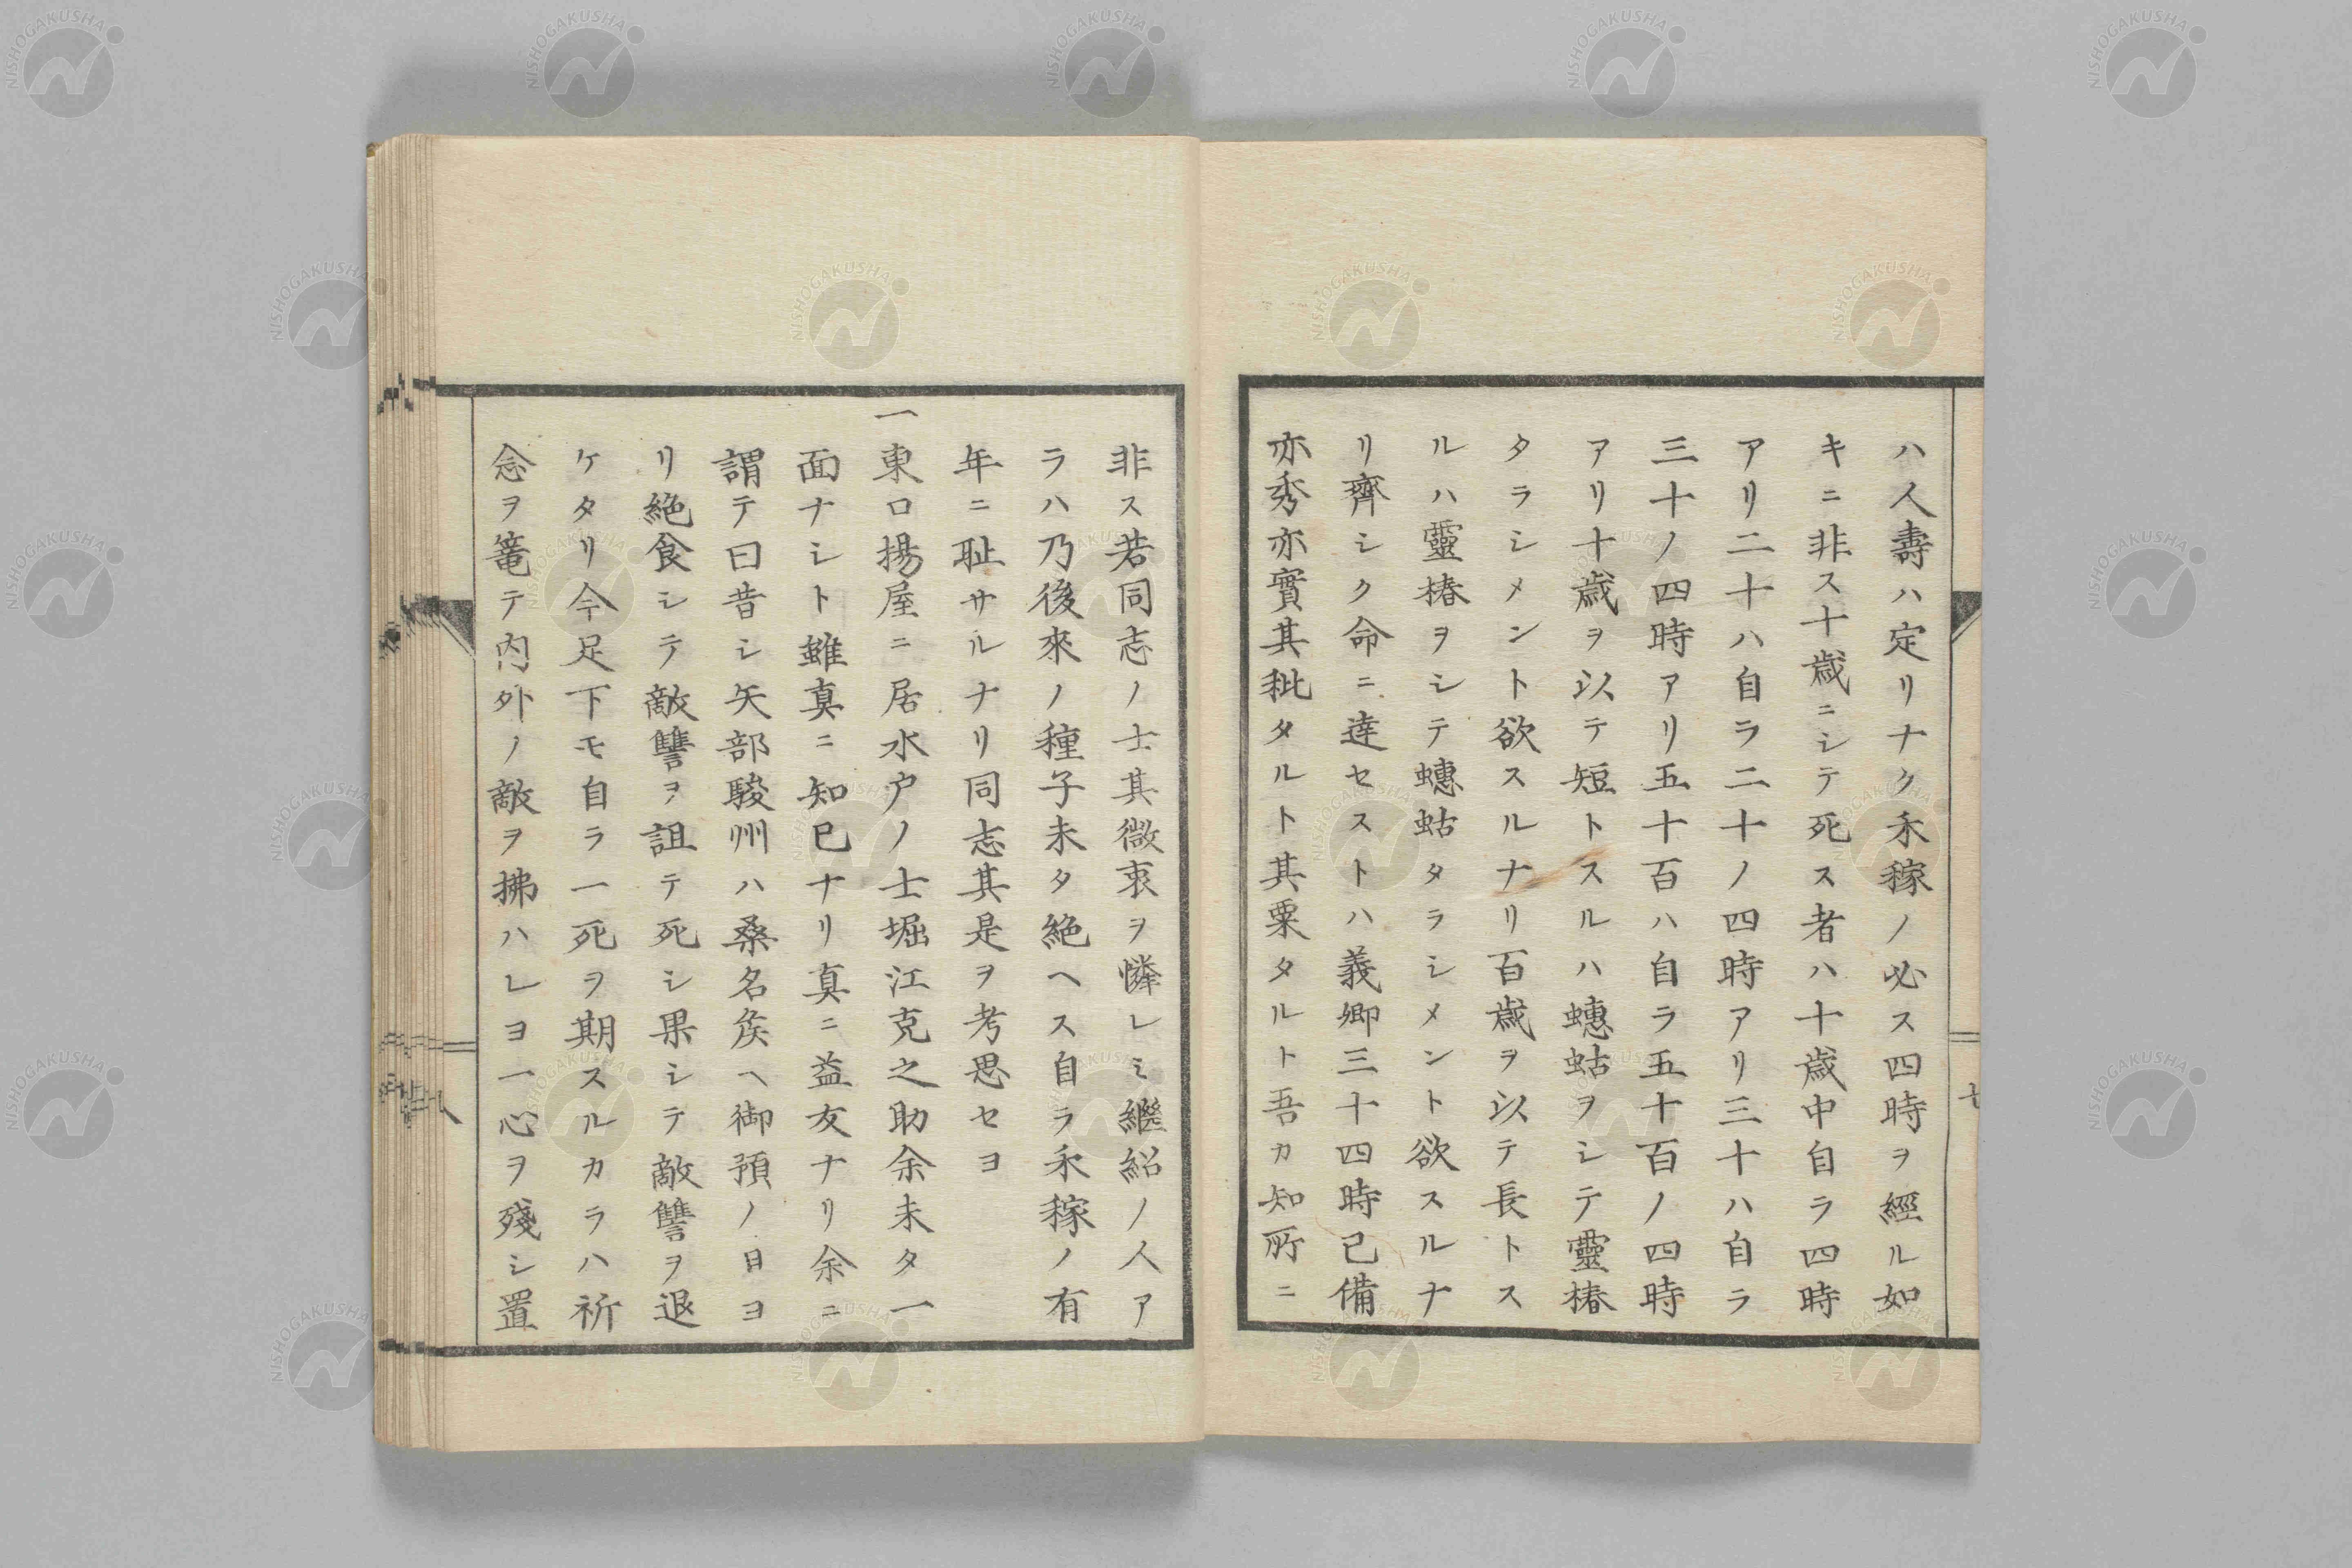 ハ人壽ハ定リナク禾稼ノ必ス四時ヲ經ル如
キニ非ス十歳ニシテ死ス者ハ十歳中自ラ四時
アリ二十ハ自ラ二十ノ四時アリ三十ハ自ラ
三十ノ四時アリ五十百ハ自ラ五十百ノ四時
アリ十歳ヲ以テ短トスルハ蟪蛄ヲシテ靈椿
タラシメント欲スルナリ百歳ヲ以テ長トス
ルハ靈椿ヲシテ蟪蛄タラシメント欲スルナ
リ齊シク命ニ達セストハ義卿三十四時已備
亦秀亦實其秕タルト其粟タルト吾カ知所ニ
七
非ス若同志ノ士其微衷ヲ憐レミ繼紹ノ人ア
ラハ乃後來ノ種子未タ絶ヘス自ラ禾稼ノ有
年ニ耻サルナリ同志其是ヲ考思セヨ
一東口揚屋ニ居水戸ノ士堀江克之助余未タ一
面ナシト雖真ニ知已ナリ真ニ益友ナリ余ニ
謂テ曰昔シ矢部駿州ハ桑名矦ヘ御預ノ日ヨ
リ絶食シテ敵讐ヲ詛テ死シ果シテ敵讐ヲ退
ケタリ今足下モ自ラ一死ヲ期スルカラハ祈
念ヲ篭テ内外ノ敵ヲ拂ハレヨ一心ヲ殘シ置
NISHOGAKUSHA